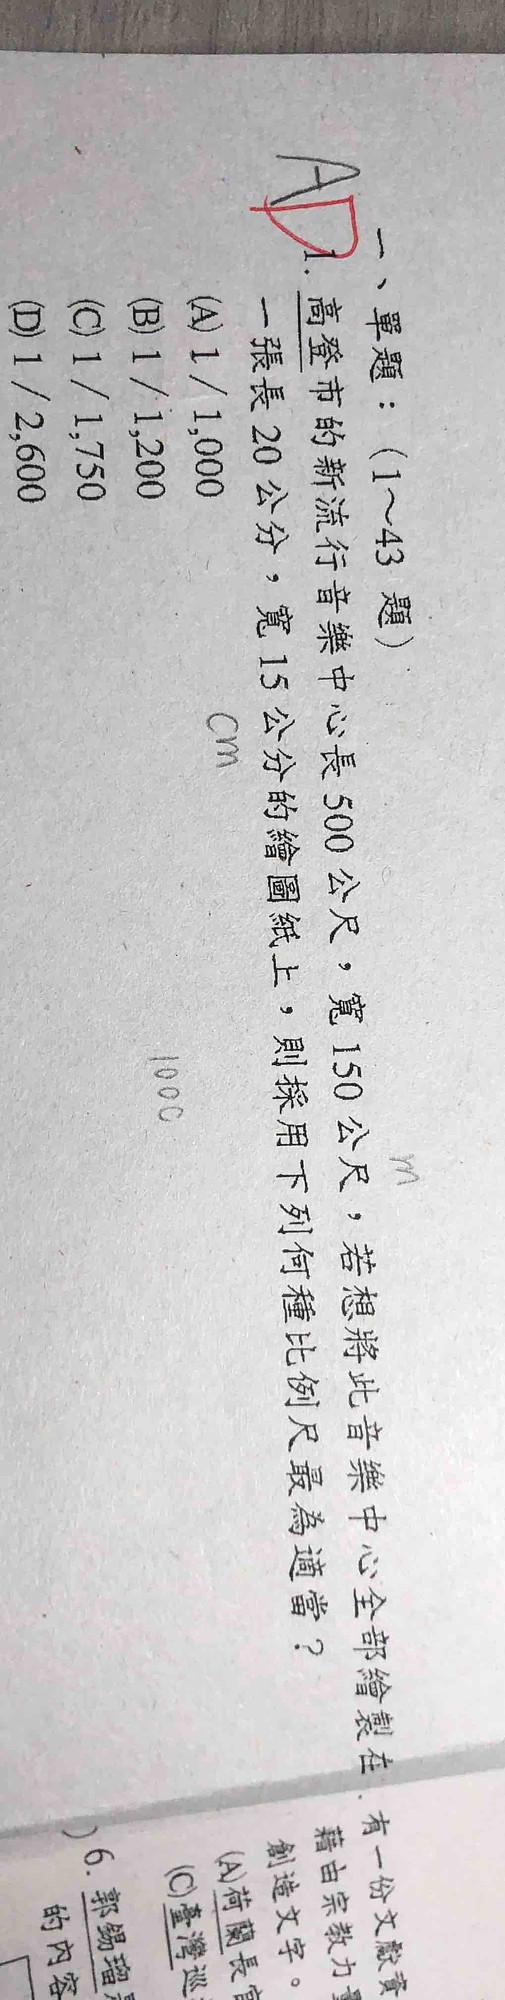 一、單題：（1～43 題）
AD
1. 高登市的新流行音樂中心長 500 公尺，寬 150 公尺，若想將此音樂中心全部繪製在
m
一張長 20 公分，寬 15 公分的繪圖紙上，則採用下列何種比例尺最為適當？
cm
(A) 1／1,000
1000
(B) 1／1,200
(C) 1／1,750
(D) 1／2,600
有一份文獻資
藉由宗教力量
創造文字。
(A)荷蘭長官
(C)臺灣巡
) 6. 郭錫瑠
的內容